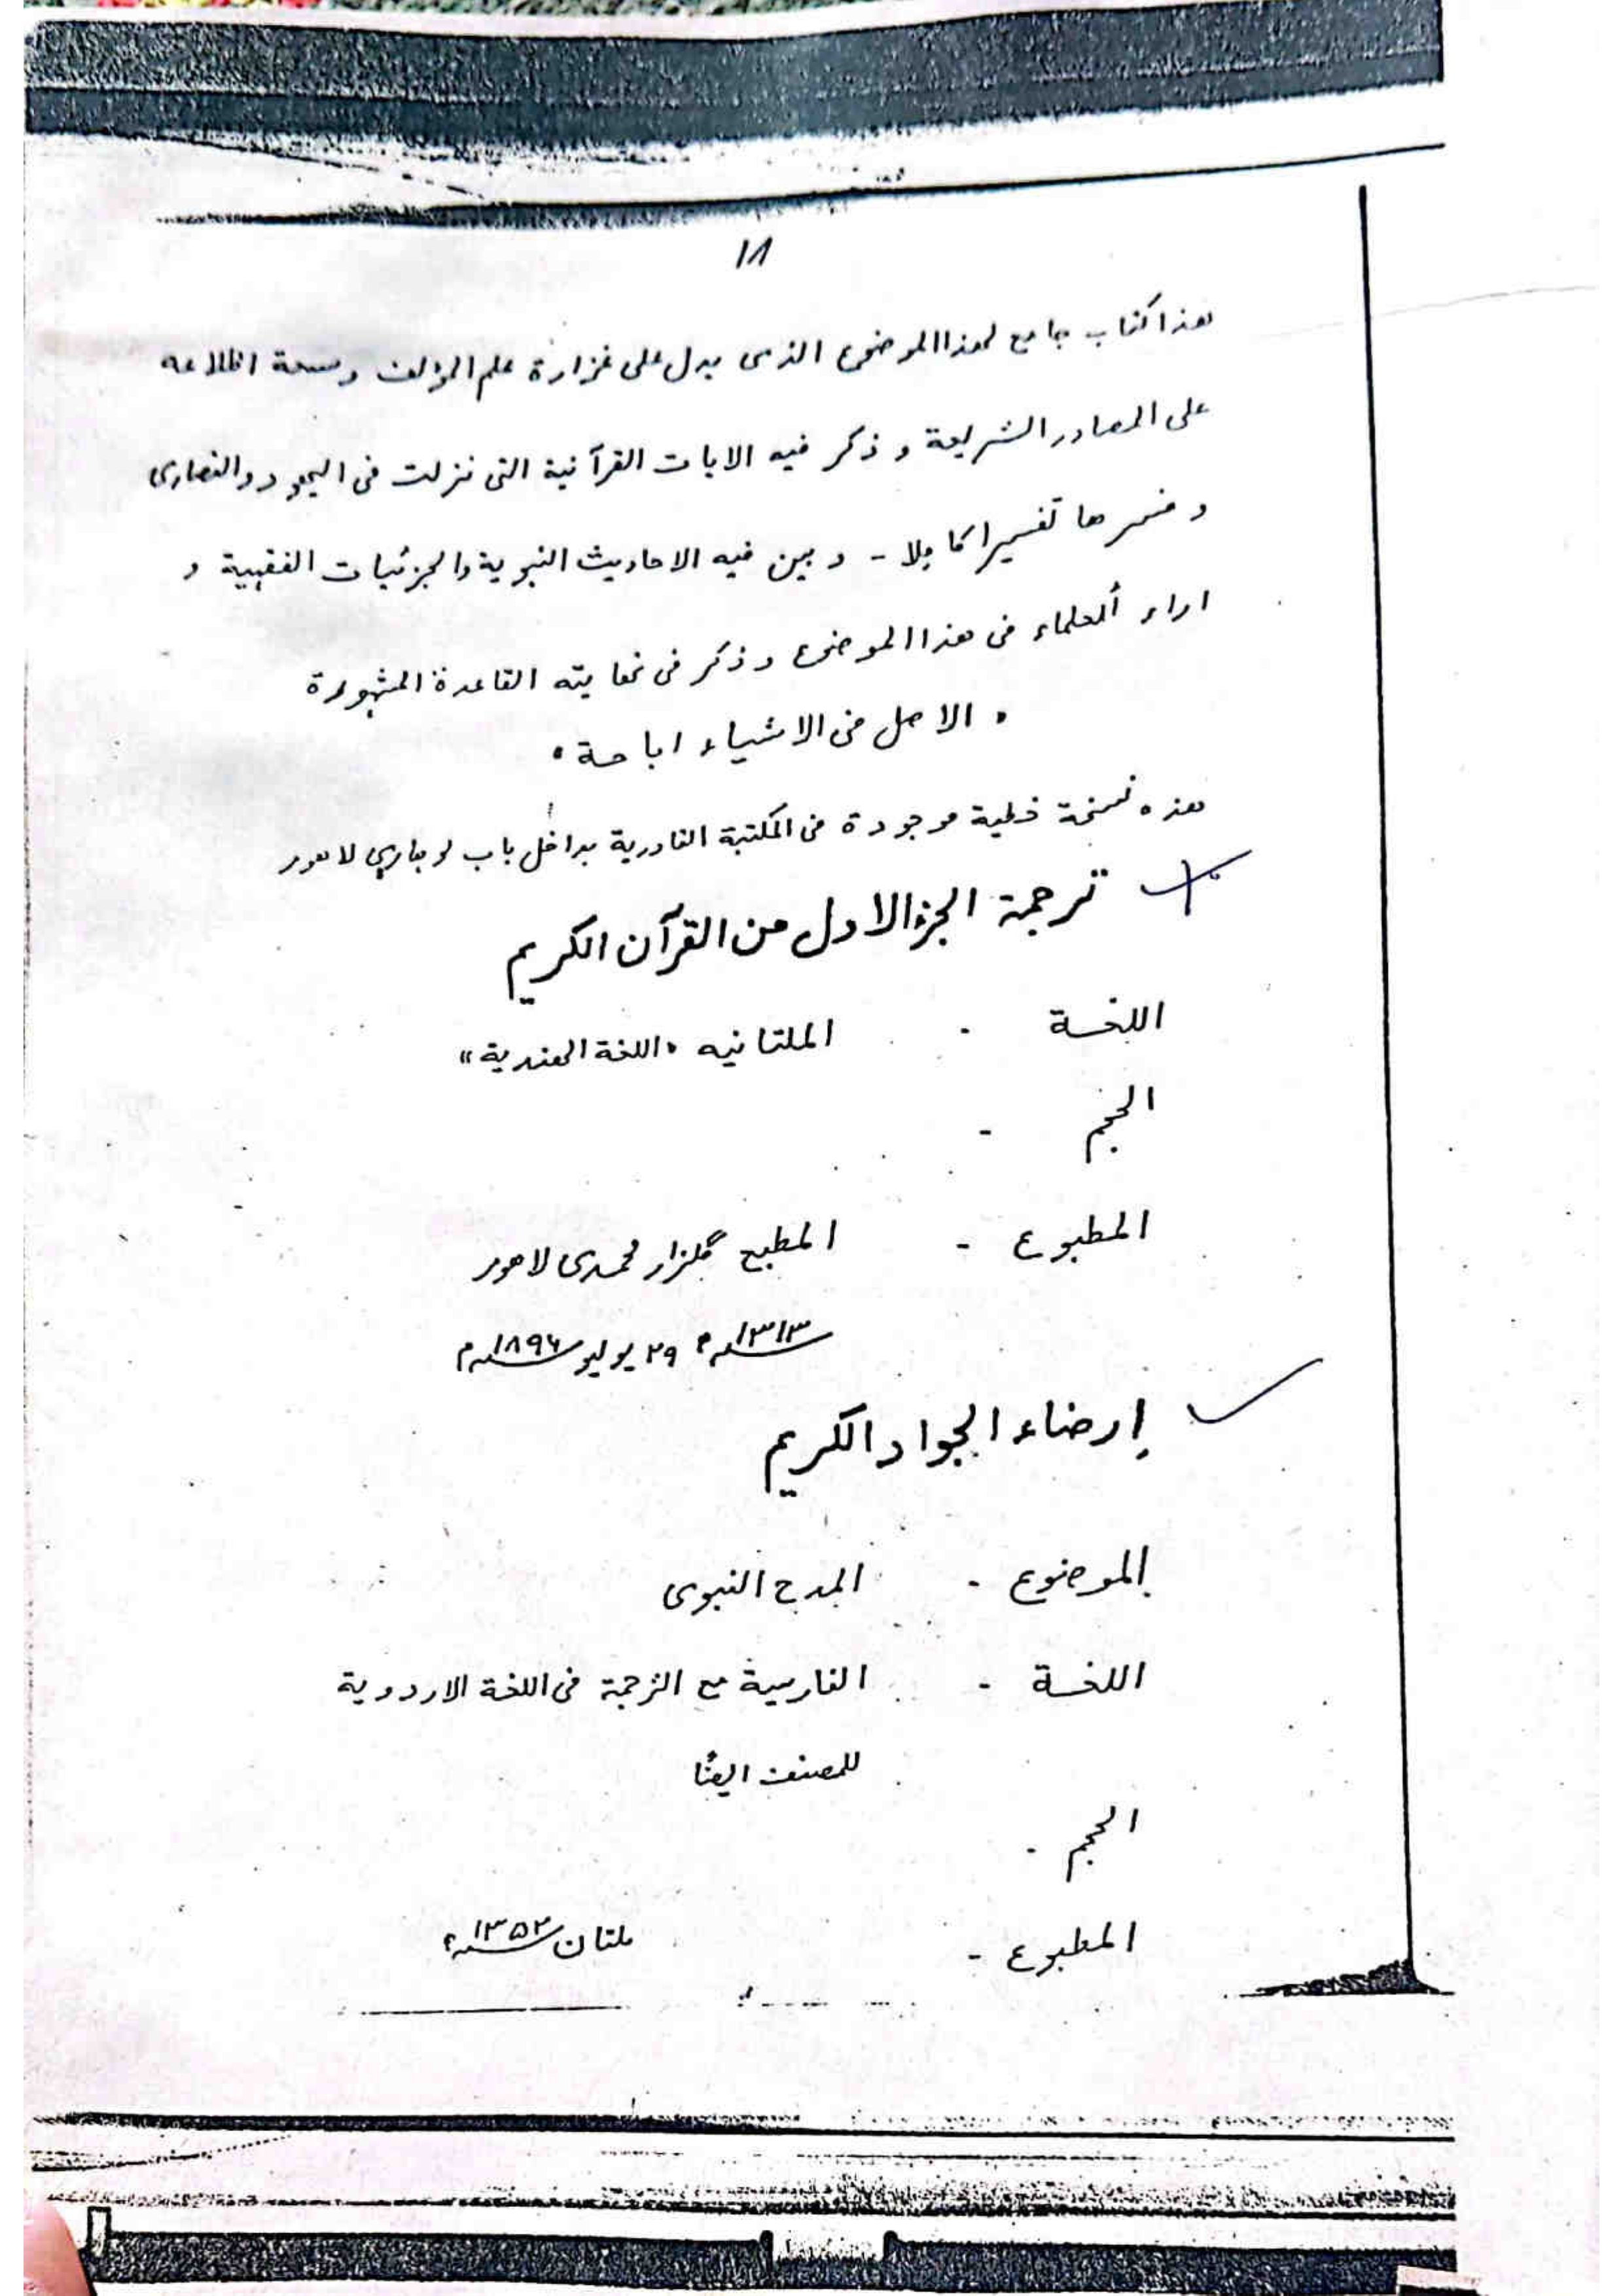 ١٨
هذا كتاب جامع لهذا الموضوع الذى يدل على غزارة علم المؤلف وسعة اطلاعه
على المصادر الشريعة و ذكر فيه الايات القرآنية التى نزلت فى اليهود والنصارى
و فسرها تفسيرا كاملا - و بين فيه الاحاديث النبوية والجزئيات الفقهية و
اراء ألعلماء فى هذا الموضوع و ذكر فى نهايته القاعدة المشهورة
" الاصل فى الاشياء اباحة "
هذه نسخة خطية موجودة فى المكتبة القادرية بداخل باب لوهاري لاهور
ترجمة الجزء الاول من القرآن الكريم
اللغة - الملتانيه "اللغة الهندية"
الحجم -
المطبوع - المطبع گلزار محمدى لاهور
١٣١٣ھ ٢٩ يوليو ١٨٩٦م
إرضاء الجواد الكريم
الموضوع - المدح النبوى
اللغة - الفارسية مع الترجمة فى اللغة الاردوية
للمصنف ايضًا
الحجم -
المطبوع - ملتان ١٣٥٢ھ